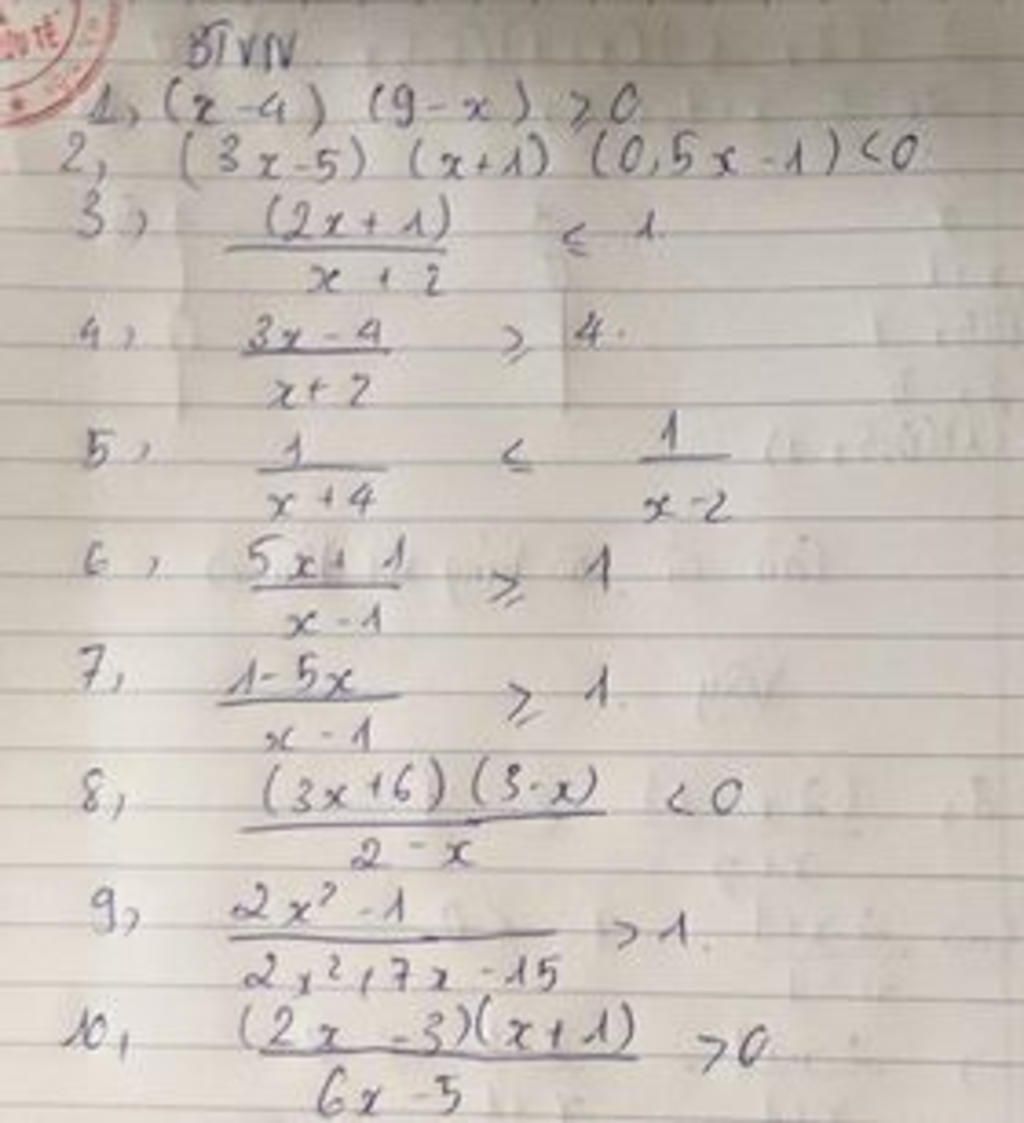 BTVN
1, (x-4) (9-x) ≥ 0
2, (3x-5) (x+1) (0,5x-1) < 0
3, (2x+1) / x+2 ≤ 1
4, 3x-4 / x+2 ≥ 4.
5, 1 / x+4 ≤ 1 / x-2
6, 5x+1 / x-1 ≥ 1
7, 1-5x / x-1 ≥ 1.
8, (3x+6)(3-x) / 2-x < 0
9, 2x²-1 / 2x²+7x-15 > 1.
10, (2x-3)(x+1) / 6x-5 > 0